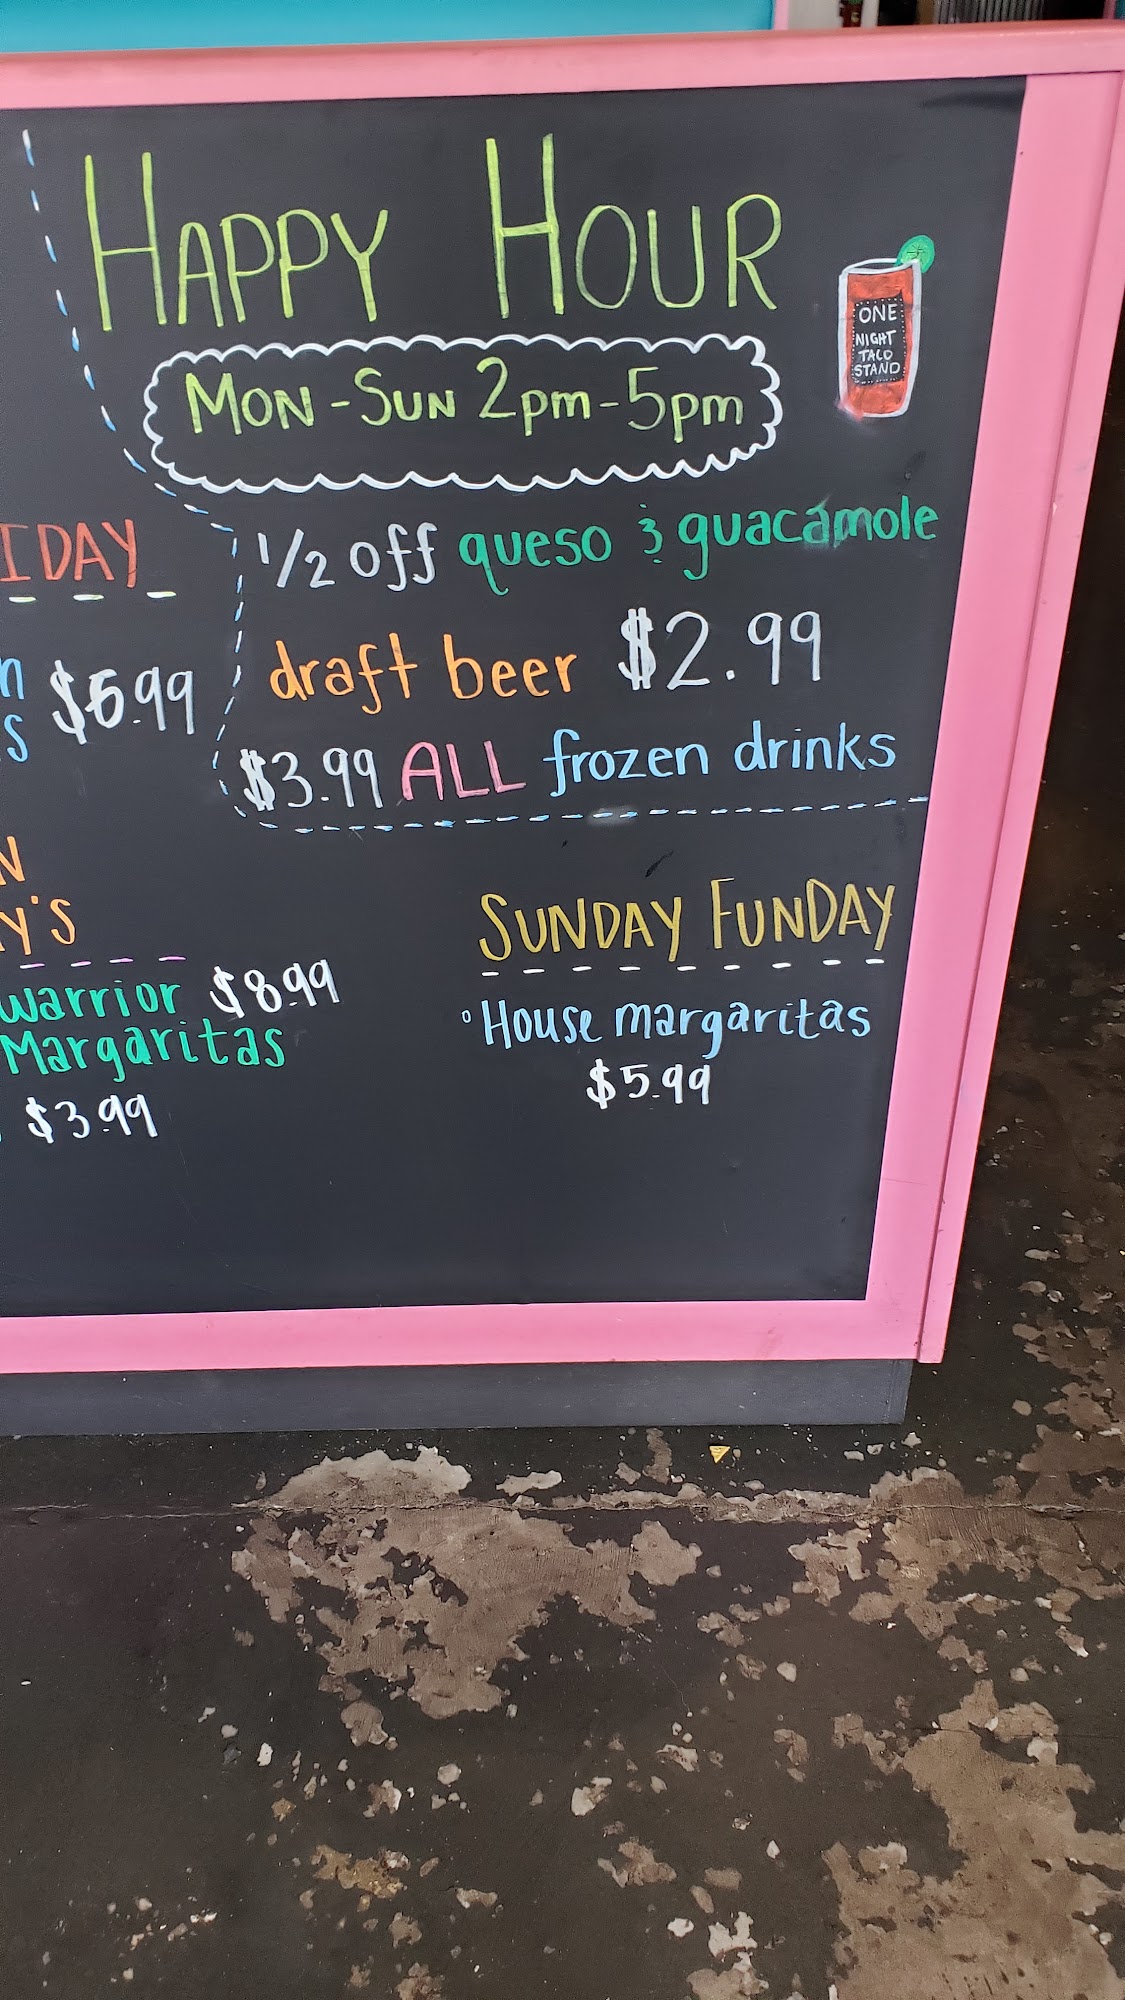 HAPPY HOUR
MON-SUN 2pm-5pm
ONE
NIGHT
TACO
STAND
1/2 off queso & guacamole
draft beer $2.99
$3.99 ALL frozen drinks
IDAY
n $6.99
s
N
Y'S
warrior $8.99
Margaritas
$3.99
SUNDAY FUNDAY
° House margaritas
$5.99